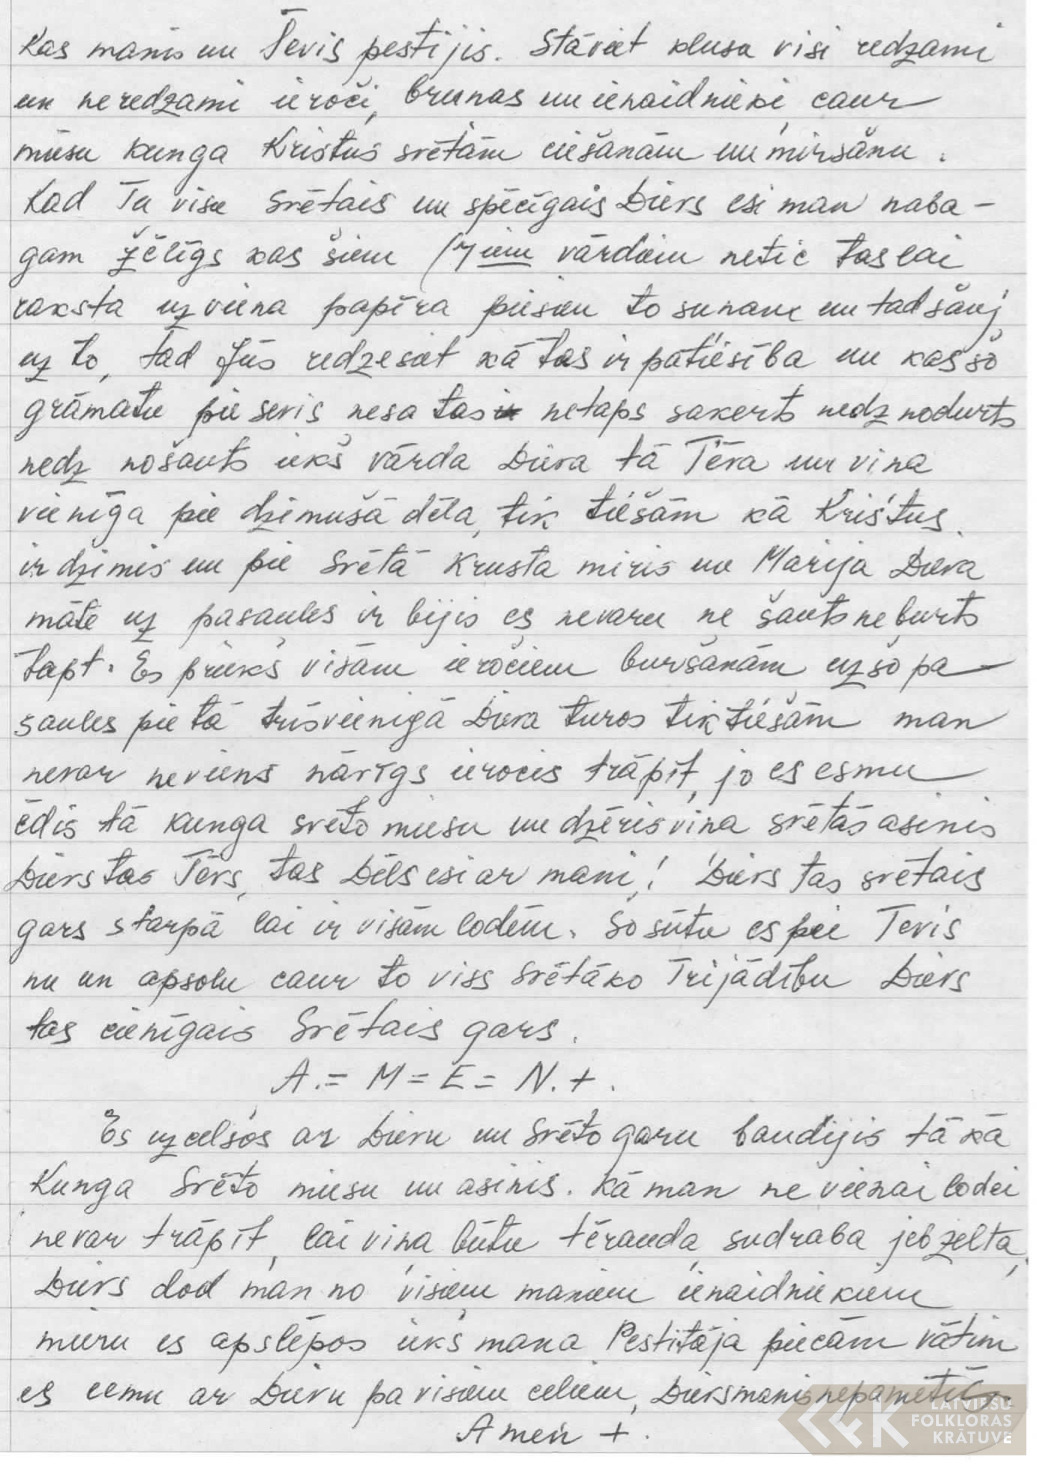 Kas manis un Tevis pestijis. Stāviet klusa visi redzami
un neredzami ieroči, bruņas un ienaidnieki, caur
mūsu kunga Kristus svētām ciešanām un miršanu.
Kad Tu visu Svētais un spēcīgais Dievs esi man naba-
gam žēlīgs kas šiem (7iem vārdiem netic tas lai
raksta uz viena papīra piesien to sunam un tad šauj
uz to, tad Jūs redzesiet kā tas ir patiesība un kas šo
grāmatu pie sevis nesa tas netaps sakerts nedz nodurts
nedz nošauts iekš vārda Dieva tā Tēva un viņa
vienīga pie dzimušā dēla, tik tiešām kā Kristus
ir dzimis un pie Svētā Krusta miris un Marija Dieva
māte uz pasaules ir bijis es nevaru ne šauts ne burts
tapt. Es priekš visām ieročiem buršanām uz šo pa-
saules pie tā trīsvienigā Dieva turos tik tiešām man
nevar neviens nāvīgs ierocis trāpīt, jo es esmu
ēdis tā kunga svēto miesu un dzēris viņa svētās asinis
Dievs tas Tēvs, tas Dēls esi ar mani! Dievs tas svētais
gars starpā lai ir visām lodēm. Šo sūtu es pie Tevis
nu un apsolu caur to viss Svētāko Trijādību Dievs
tas cienīgais Svētais gars.
A. = M = E = N. +.
Es uzcelšos ar Dievu un Svēto garu baudijis tā kā
Kunga Svēto miesu un asinis. Kā man ne vienai lodei
nevar trāpīt, lai viņa būtu tērauda, sudraba jeb zelta,
Dievs dod man no visiem maniem ienaidniekiem
mieru es apslēpos iekš mana Pestitāja piecām vātim
es eemu ar Dievu pa visiem celiem, Dievs manis nepametīs.
Amen +.
LATVIEŠU
FOLKLORAS
KRĀTUVE